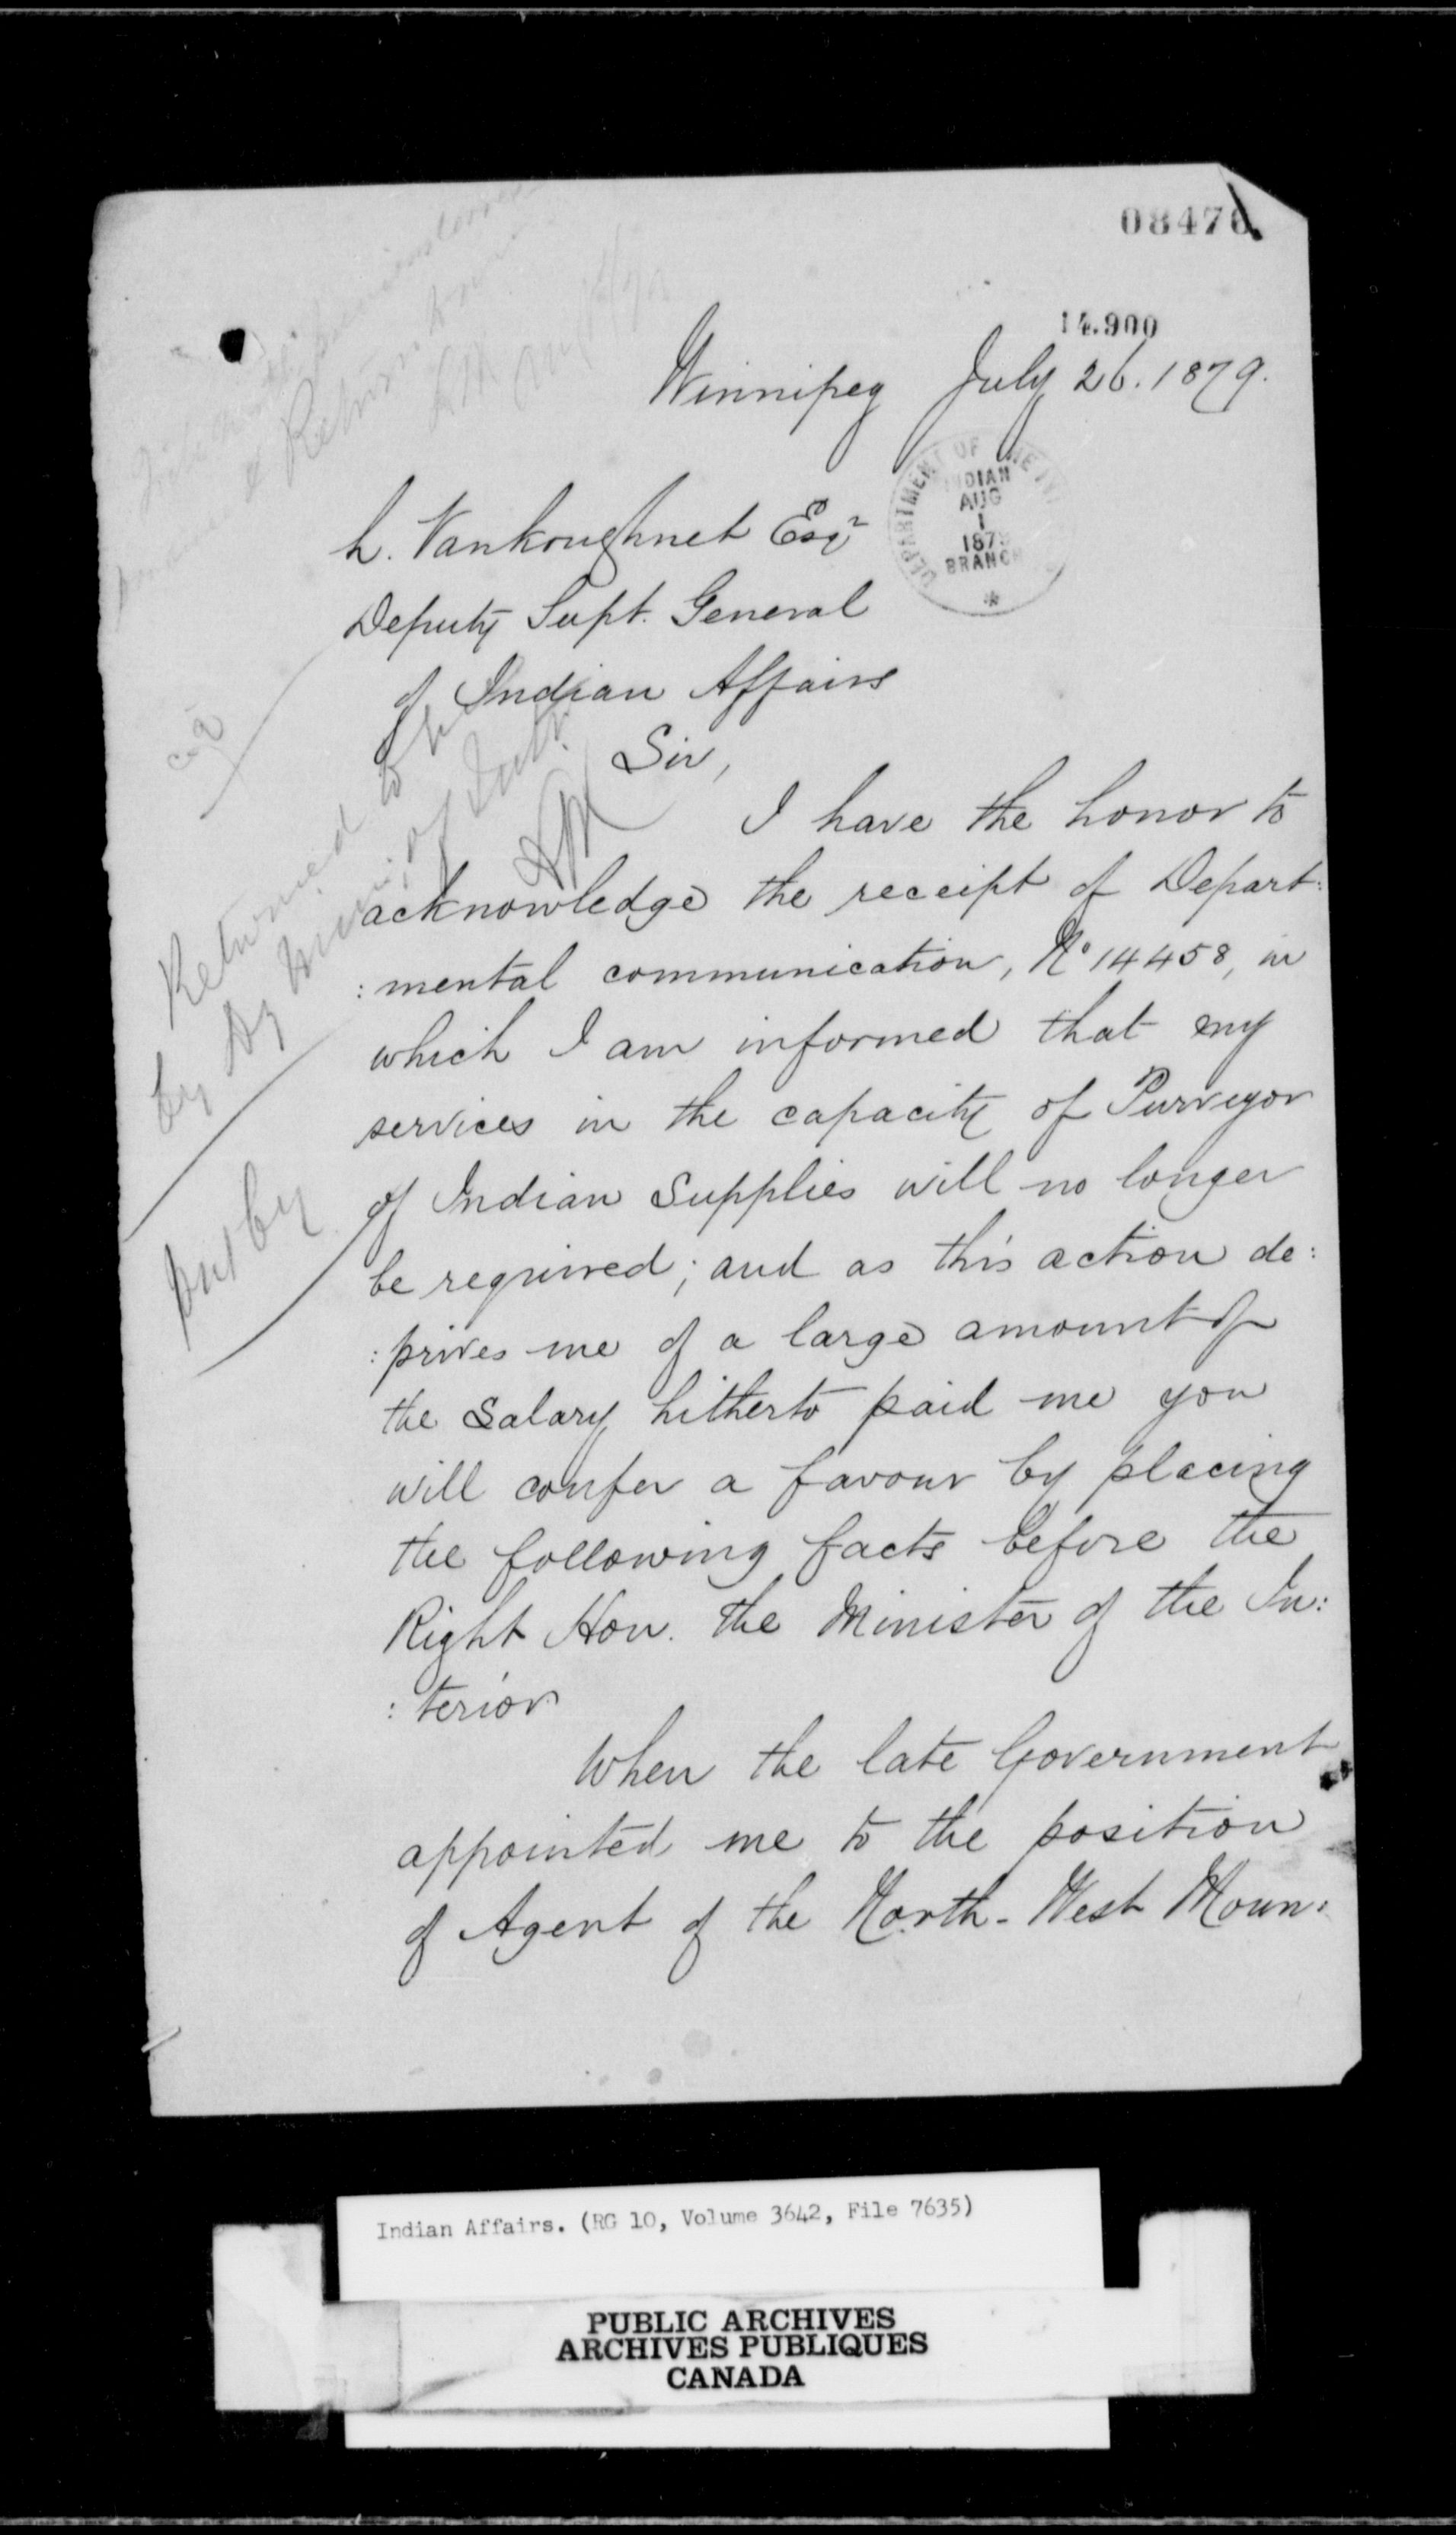 08476
14.900
Winnipeg July 26. 1879.
DEPARTMENT OF THE
INDIAN
AUG
1
1879
BRANCH
L. Vankoughnet Esqr
Deputy Supt. General
of Indian Affairs
Sir,
I have the honor to
acknowledge the receipt of Depart:
:mental communication, No 14458, in
which I am informed that my
services in the capacity of Purveyor
of Indian Supplies will no longer
be required; and as this action de:
:prives me of a large amount of
the Salary hitherto paid me you
will confer a favour by placing
the following facts before the
Right Hon. the Minister of the In:
:terior
When the late Government
appointed me to the position
of Agent of the North-West Moun:
Returned to
by Dy Minr. of Intr.
Put by
Indian Affairs. (RG 10, Volume 3642, File 7635)
PUBLIC ARCHIVES
ARCHIVES PUBLIQUES
CANADA